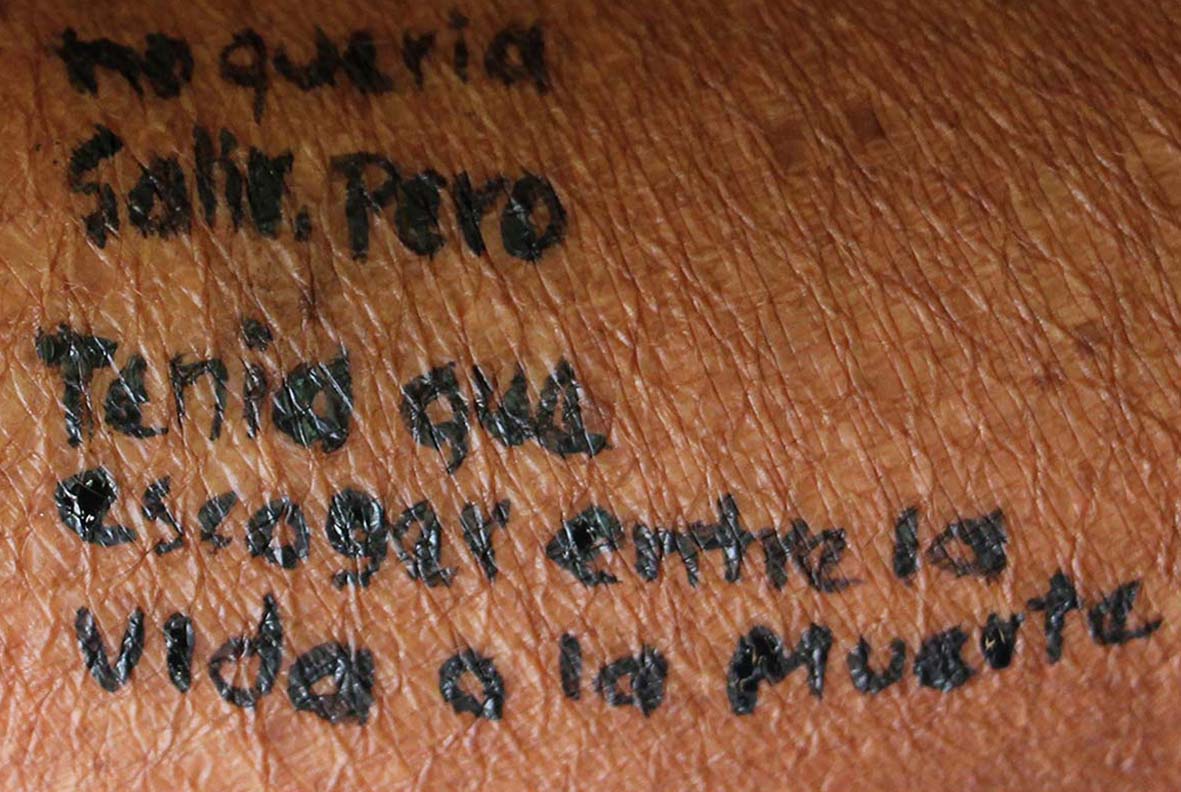 no queria
Salir, Pero
Tenia que
escoger entre la
Vida o la Muerte